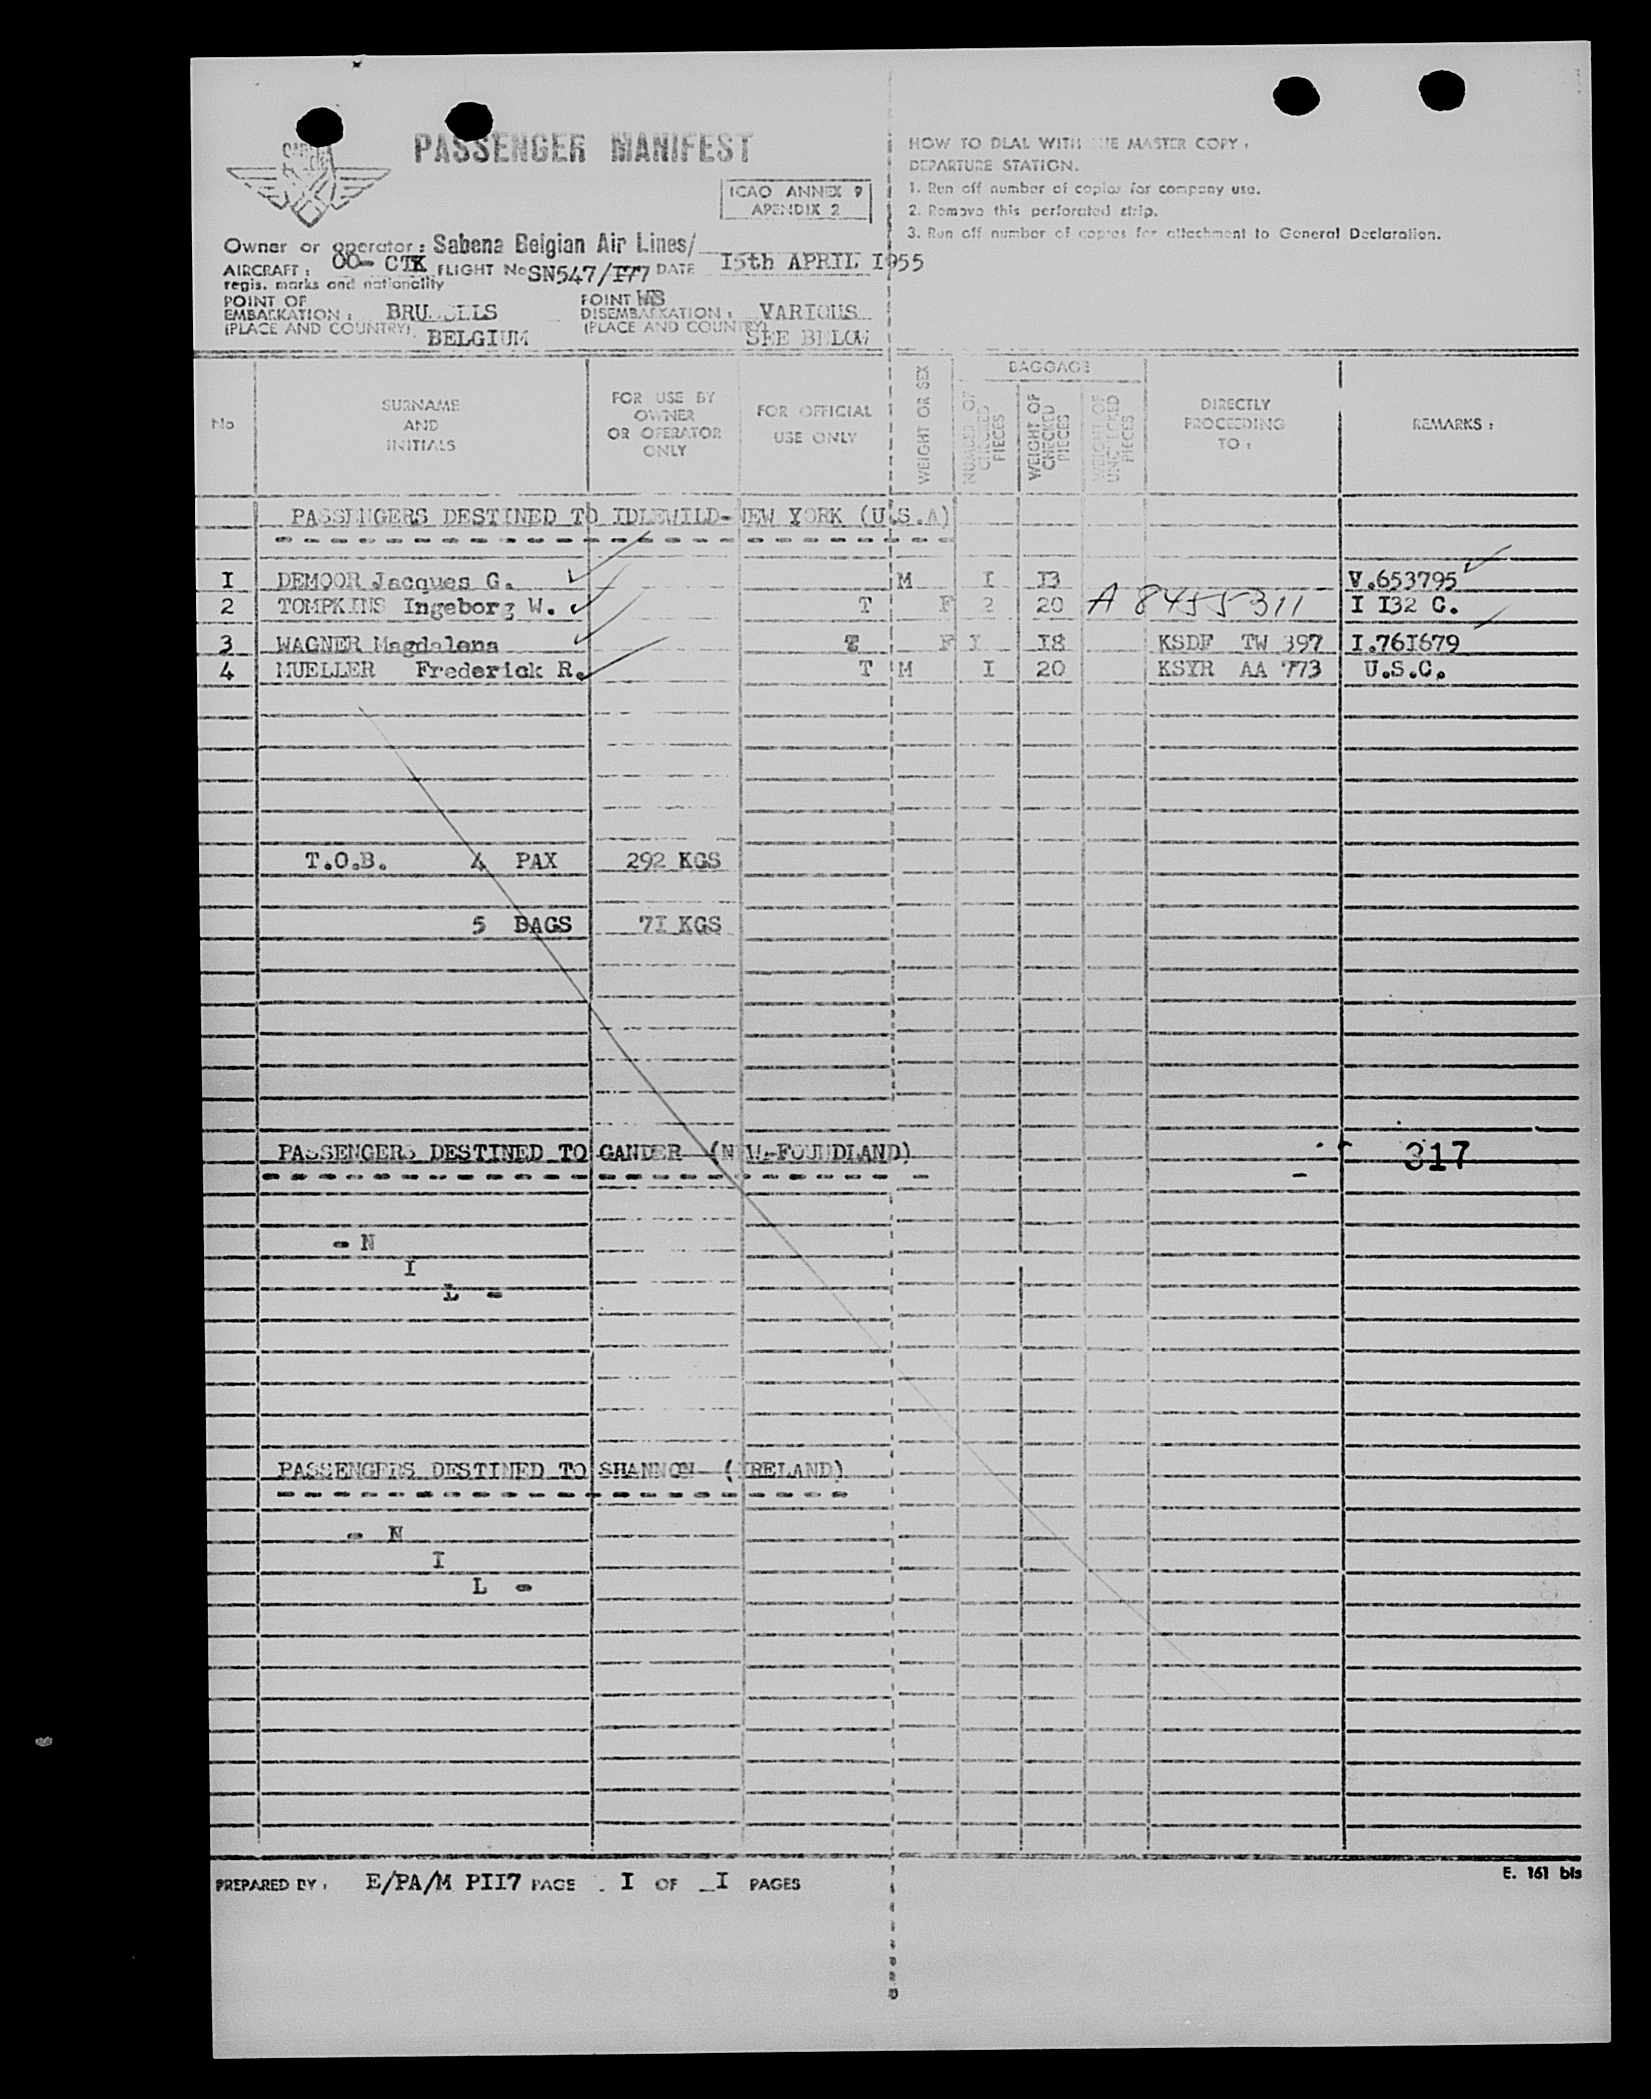 PASSENGER MANIFEST
ICAO ANNEX 9
APENDIX 2
HOW TO DEAL WITH THE MASTER COPY :
DEPARTURE STATION.
1. Run off number of copies for company use.
2. Remove this perforated strip.
3. Run off number of copies for attachment to General Declaration.
Owner or operator : Sabena Belgian Air Lines/
AIRCRAFT : OO- CTK FLIGHT No SN547/177 DATE 15th APRIL 1955
regis. marks and nationality
POINT OF EMBARKATION : BRUSSELS
(PLACE AND COUNTRY) BELGIUM
POINT
DISEMBARKATION : VARIOUS
(PLACE AND COUNTRY) SEE BELOW
No
SURNAME AND INITIALS
FOR USE BY OWNER OR OPERATOR ONLY
FOR OFFICIAL USE ONLY
WEIGHT OR SEX
BAGGAGE
NUMBER OF CHECKED PIECES
WEIGHT OF CHECKED PIECES
WEIGHT OF UNCHECKED PIECES
DIRECTLY PROCEEDING TO :
REMARKS :
PASSENGERS DESTINED TO IDLEWILD-NEW YORK (U.S.A)
I DEMOOR Jacques G. M I I3 V.653795
2 TOMPKINS Ingeborg W. T F 2 20 A 8455311 I I32 C.
3 WAGNER Magdalena T F I I8 KSDF TW 397 I.76I679
4 MUELLER Frederick R. T M I 20 KSYR AA 773 U.S.C.
T.O.B. 4 PAX 292 KGS
5 BAGS 7I KGS
PASSENGERS DESTINED TO GANDER (NEW-FOUNDLAND)
317
- N
I
L -
PASSENGERS DESTINED TO SHANNON (IRELAND)
- N
I
L -
E. 161 bis
PREPARED BY : E/PA/M PII7 PAGE I OF I PAGES